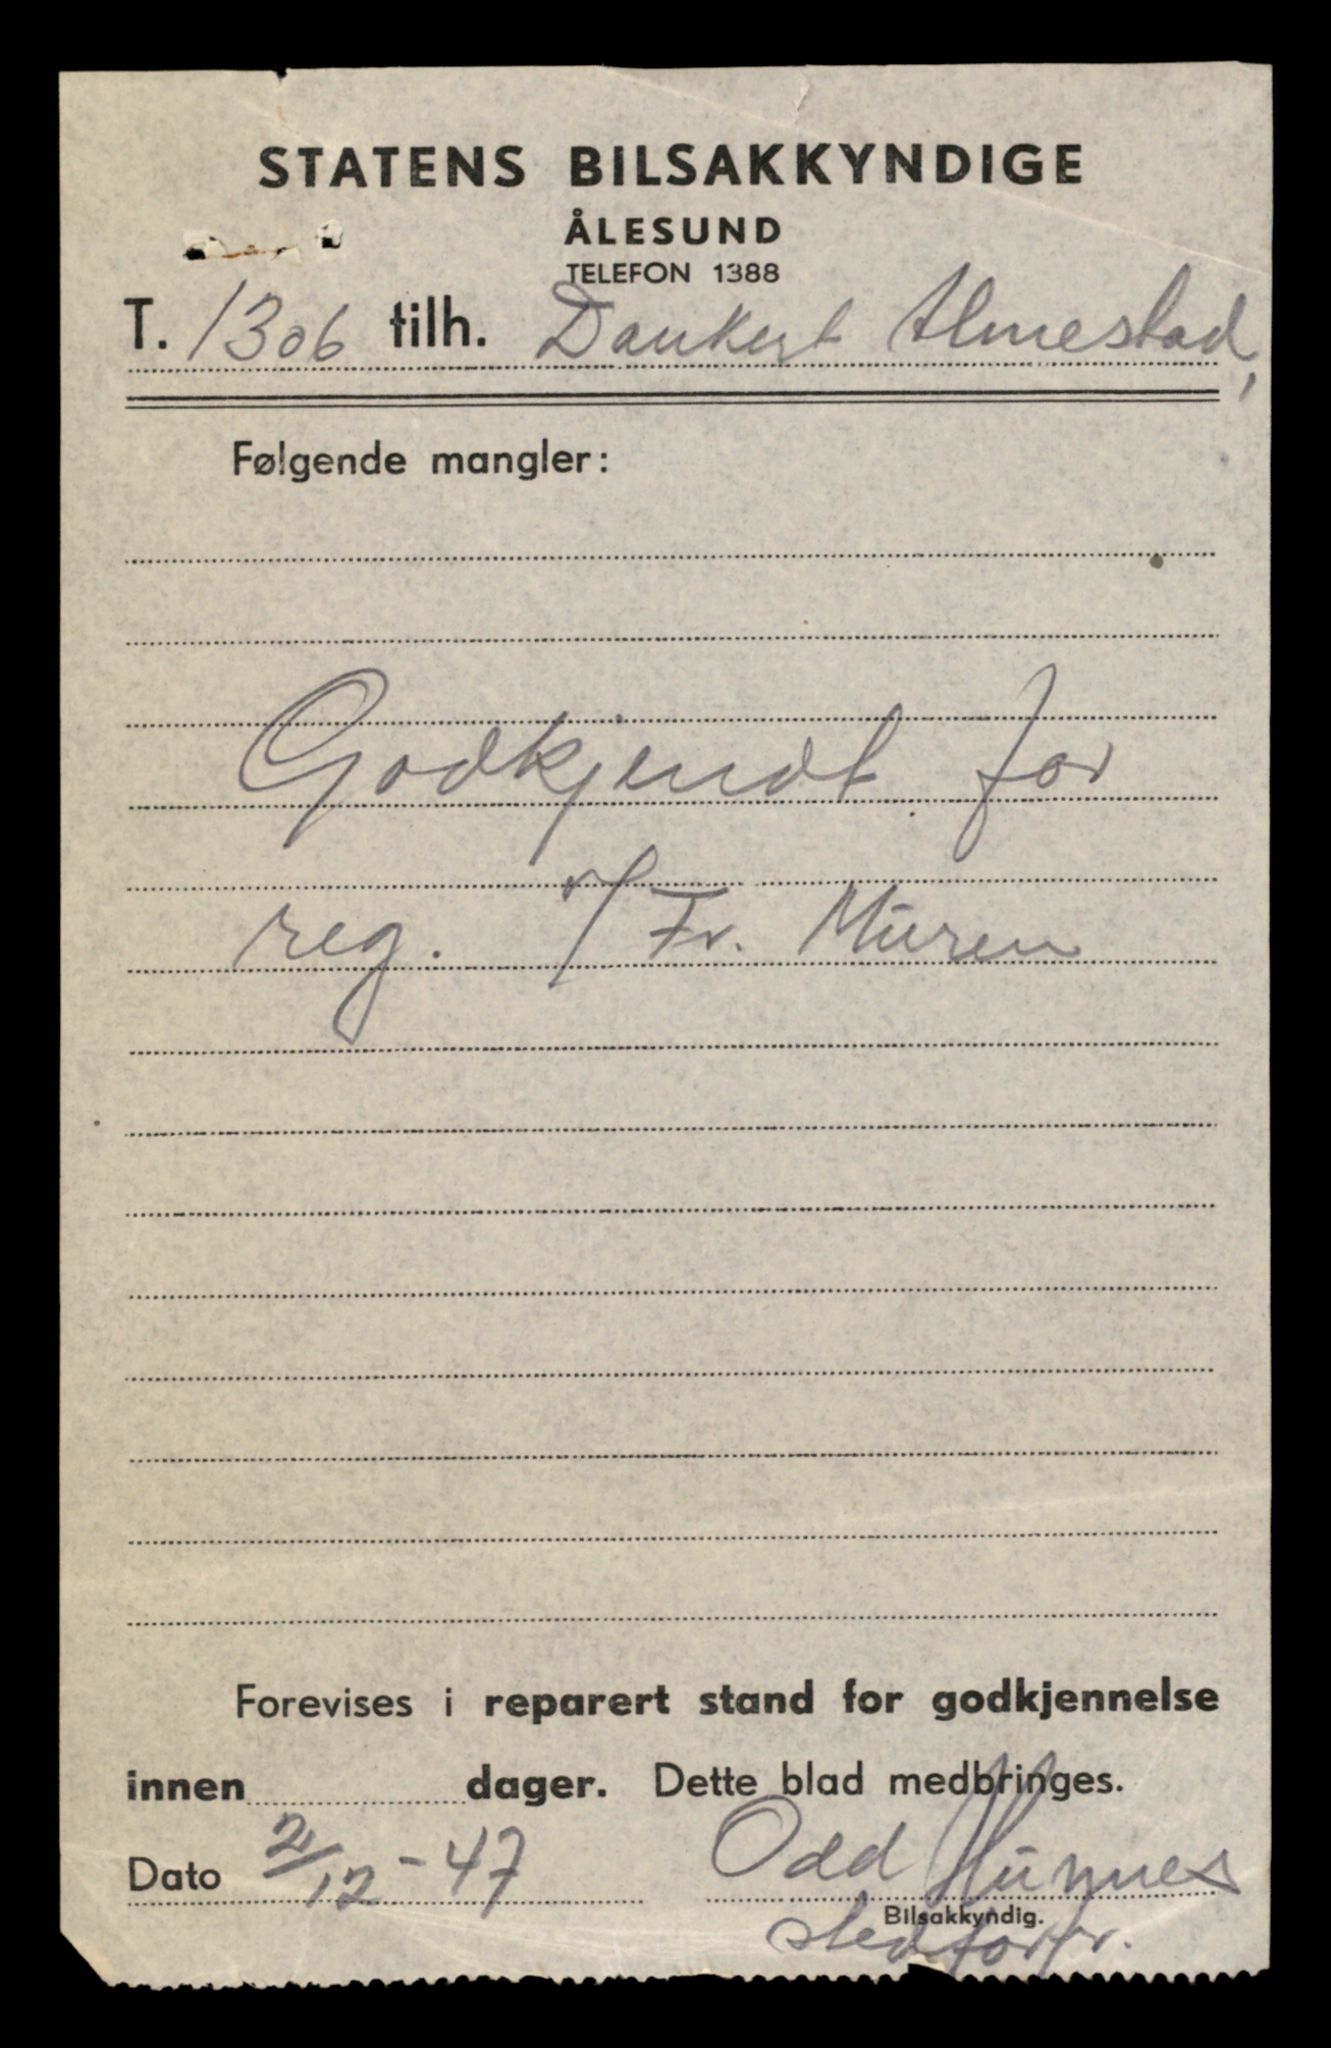 STATENS BILSAKKYNDIGE
ÅLESUND
TELEFON 1388
T. 1306 tilh. Dankert Almestad,
Følgende mangler:
Godkjendt for
reg. Fr. Muren
Forevises i reparert stand for godkjennelse
innen dager. Dette blad medbringes.
Dato 2/12-47 Odd
Bilsakkyndig.